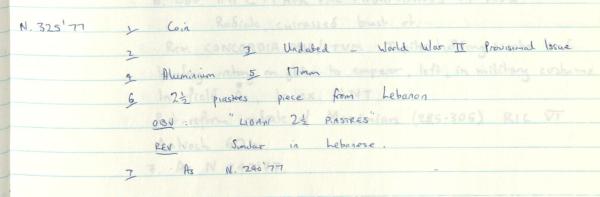 N. 325'77 1 Coin
2 3 Undated World War II Provisional Issue
4 Aluminium 5 17mm
6 2½ piastres piece from Lebanon
OBV : "LIBAN 2½ PIASTRES"
REV Similar in Lebanese.
7 As N. 240'77